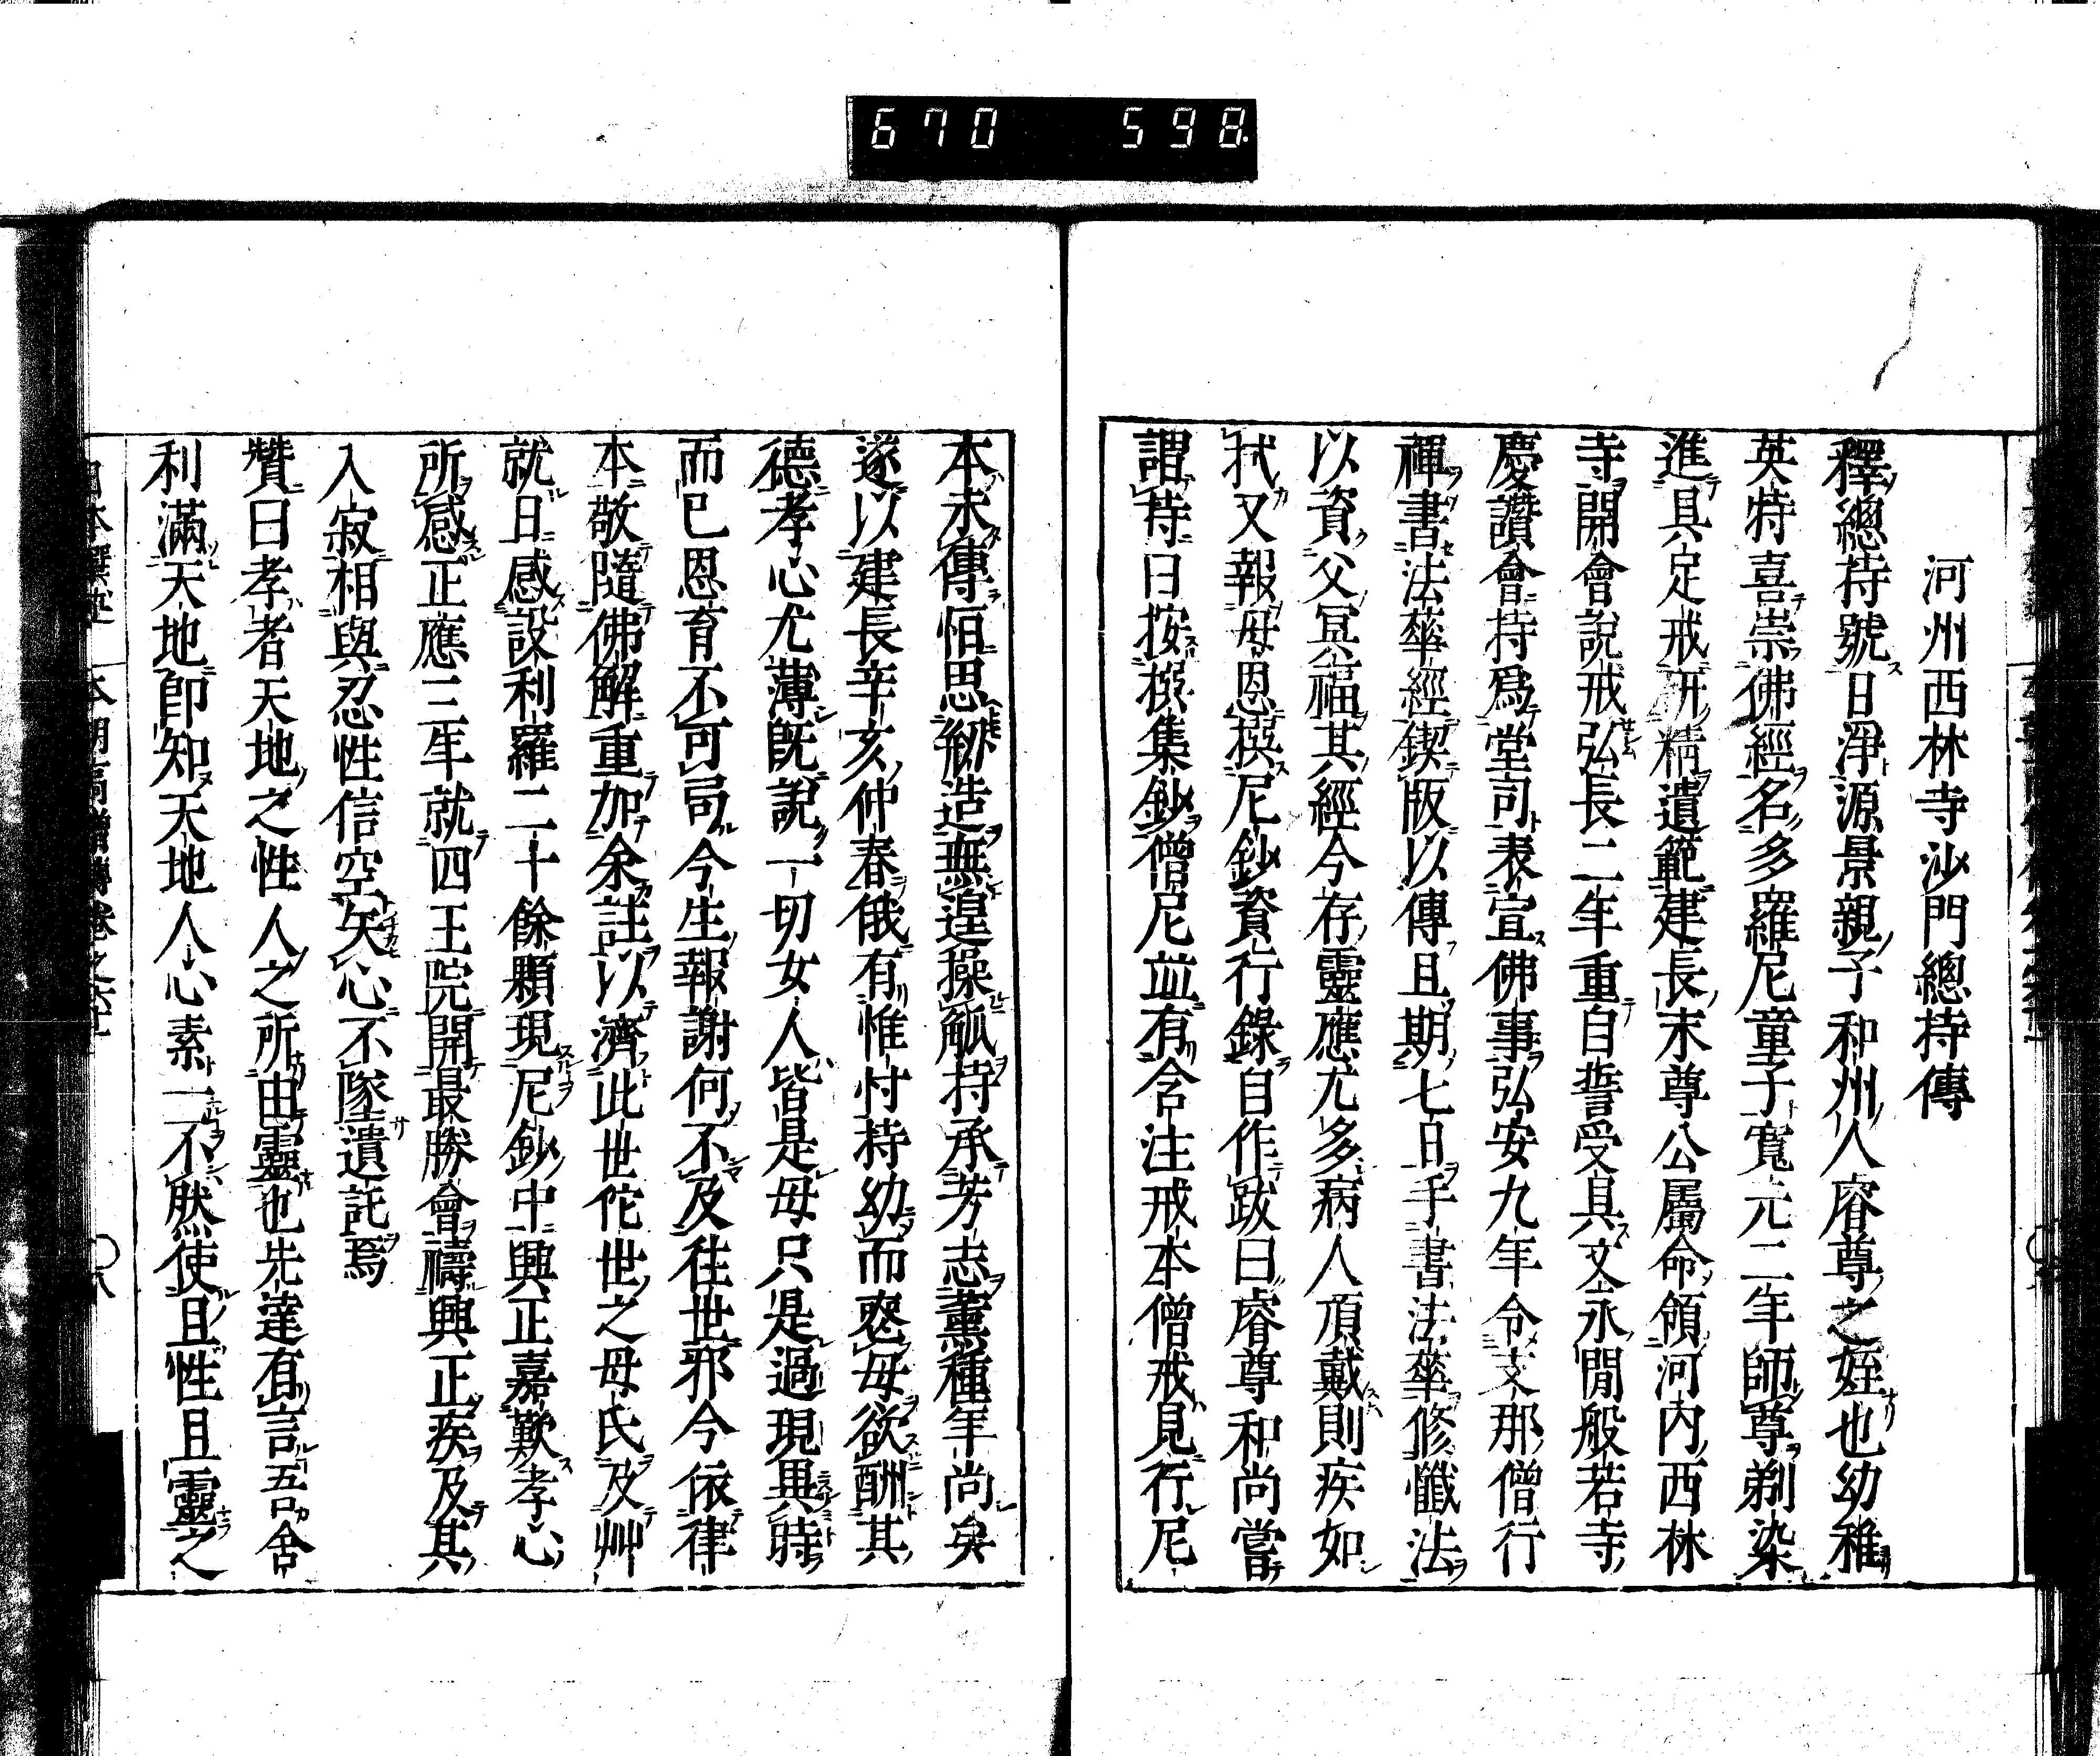 670 598
河州西林寺沙門總持傳
釋總持號曰淨源景親子和州人睿尊之姪也幼稚
英特喜崇佛經名多羅尼童子寬元二年師尊剃染
進具足戒研精遺範建長末尊公屬命領河内西林
寺開會說戒弘長二年重自誓受具文永間般若寺
慶讚會持爲堂司表宣佛事弘安九年令支那僧行
禪書法華經鍥版以傳且期七日手書法華修懺法
以資父冥福其經今存靈應尤多病人頂戴則疾如
拭又報母恩撰尼鈔資行錄自作跋曰睿尊和尚嘗
謂持曰按撰集鈔僧尼並有含注戒本僧戒見行尼
本未傳怕思紉造無遑操觚持承芳志薰種年尚矣
遂以建長辛亥仲春俄有惟忖持幼而喪母欲酬其
德孝心尤薄旣說一切女人皆是母只是過現異時
而已恩育不可局今生報謝何不及往世邪今依律
本敬隨佛解重加余註以濟此世佗世之母氏及艸
就日感設利羅二十餘顆現尼鈔中興正嘉歎孝心
所感正應三年就四王院開最勝會禱興正疾及其
入寂相與忍性信空矢心不墜遺託焉
贊曰孝者天地之性人之所由靈也先達有言吾舍
利滿天地即知天地人心素一不然使且性且靈之
本朝高僧傳卷之六十